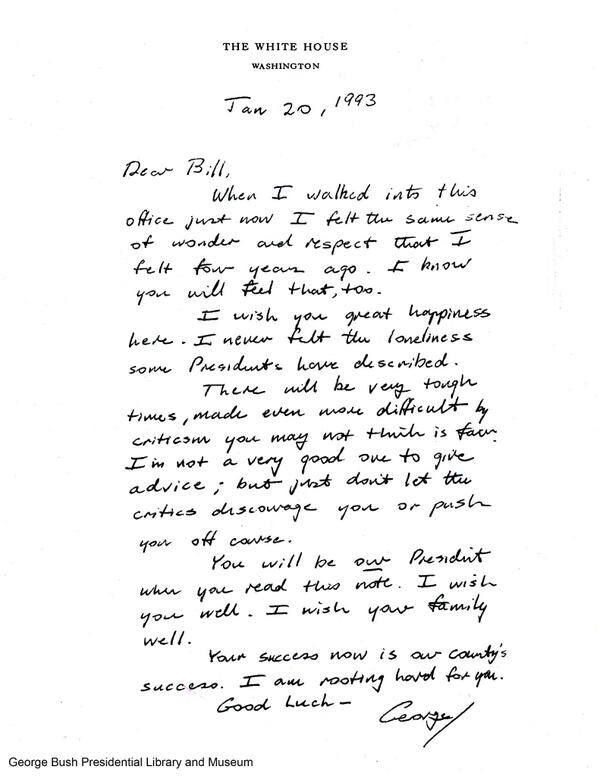 THE WHITE HOUSE
WASHINGTON
Jan 20, 1993
Dear Bill,
When I walked into this
office just now I felt the same sense
of wonder and respect that I
felt four years ago. I know
you will feel that, too.
I wish you great happiness
here. I never felt the loneliness
some Presidents have described.
There will be very tough
times, made even more difficult by
criticism you may not think is fair.
I'm not a very good one to give
advice; but just don't let the
critics discourage you or push
you off course.
You will be our President
when you read this note. I wish
you well. I wish your family
well.
Your success now is our country's
success. I am rooting hard for you.
Good Luck -
George
George Bush Presidential Library and Museum